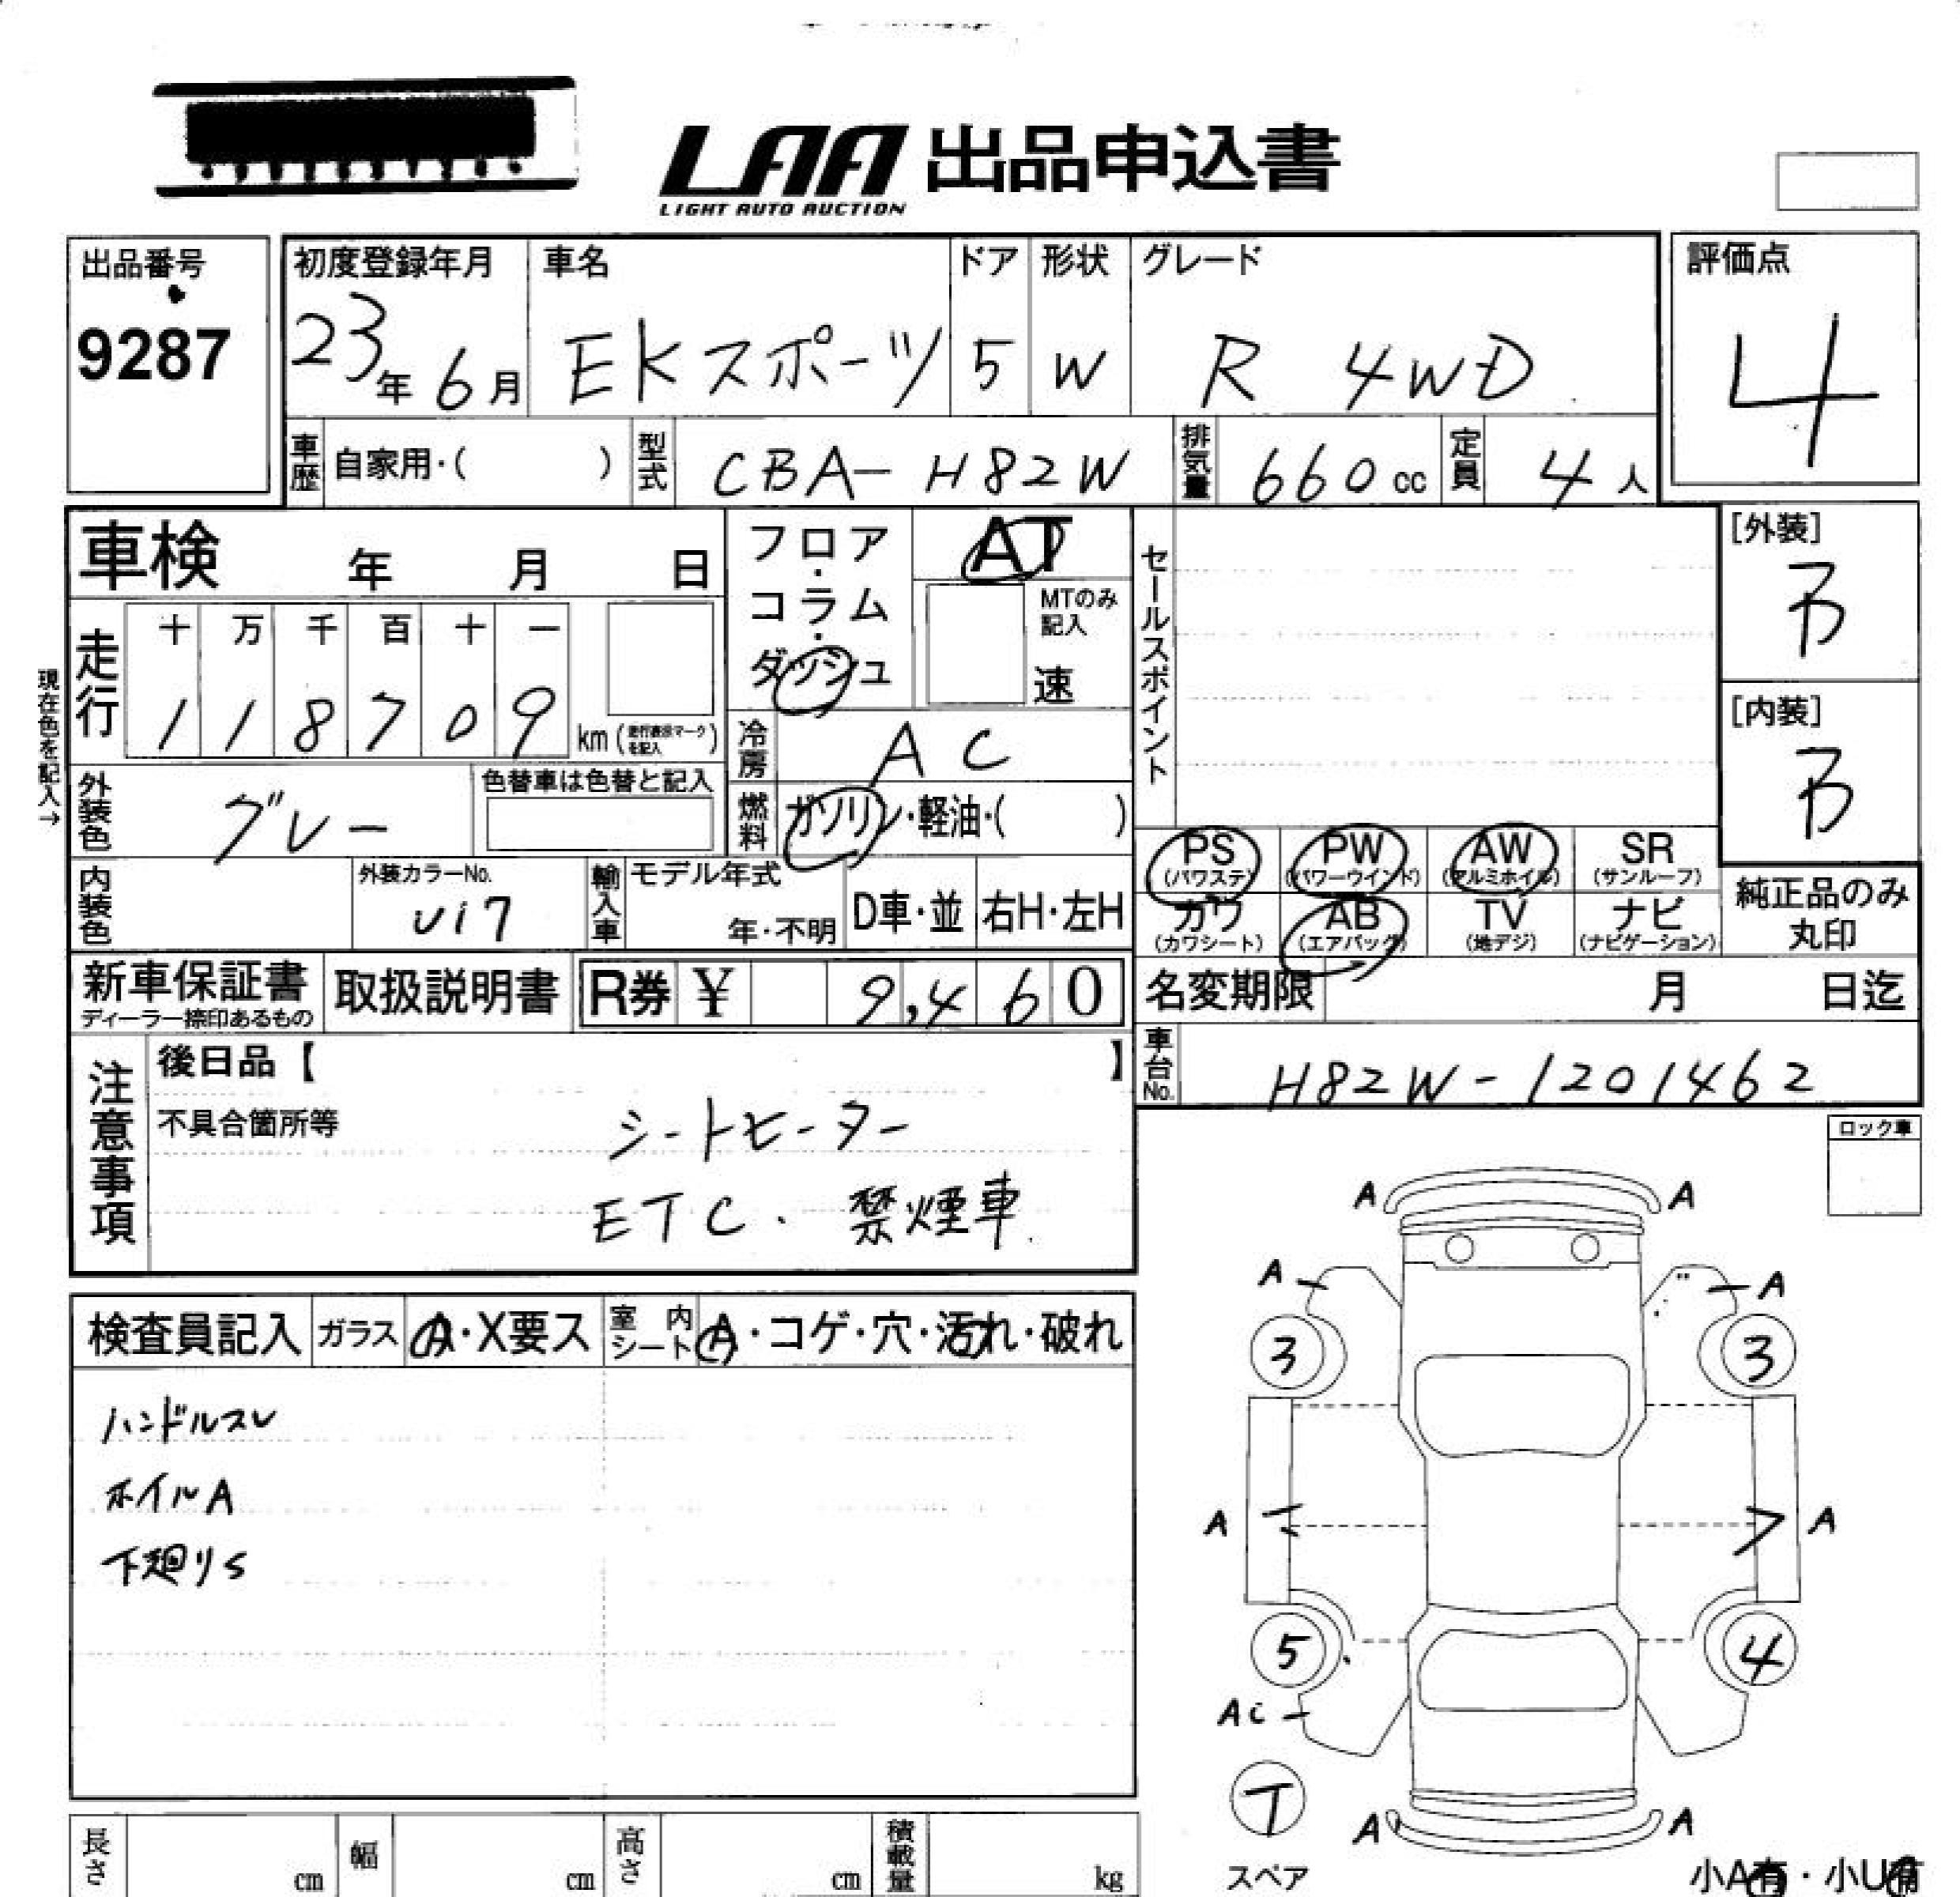 LAA 出品申込書
LIGHT AUTO AUCTION
出品番号
9287
初度登録年月
23年 6月
車名
EKスポーツ
ドア
5
形状
W
グレード
R 4WD
評価点
4
車歴 自家用・( )
型式 CBA-H82W
排気量 660cc
定員 4人
車検 年 月 日
走行
十 万 千 百 十 一
1 1 8 7 0 9 km (走行表示マークを記入)
現在色を記入→
外装色 グレー
色替車は色替と記入
フロア・コラム・ダッシュ
AT
MTのみ記入
速
冷房 AC
燃料 ガソリン・軽油・( )
セールスポイント
[外装]
B
[内装]
B
内装色
外装カラーNo.
U17
輸入車
モデル年式
年・不明
D車・並
右H・左H
PS (パワステ)
PW (パワーウインド)
AW (アルミホイル)
SR (サンルーフ)
カワ (カワシート)
AB (エアバッグ)
TV (地デジ)
ナビ (ナビゲーション)
純正品のみ
丸印
新車保証書
ディーラー捺印あるもの
取扱説明書
R券 ¥ 9,460
名変期限 月 日迄
車台No. H82W-1201462
注意事項
後日品【 】
不具合箇所等
シートヒーター
ETC. 禁煙車
ロック車
検査員記入
ガラス A・X要ス
室内シート A・コゲ・穴・汚れ・破れ
ハンドルスレ
ホイルA
下廻りS
A A
A A
3 3
A A
5 4
AC
T
スペア
A A
小A有・小U有
長さ cm
幅 cm
高さ cm
積載量 kg